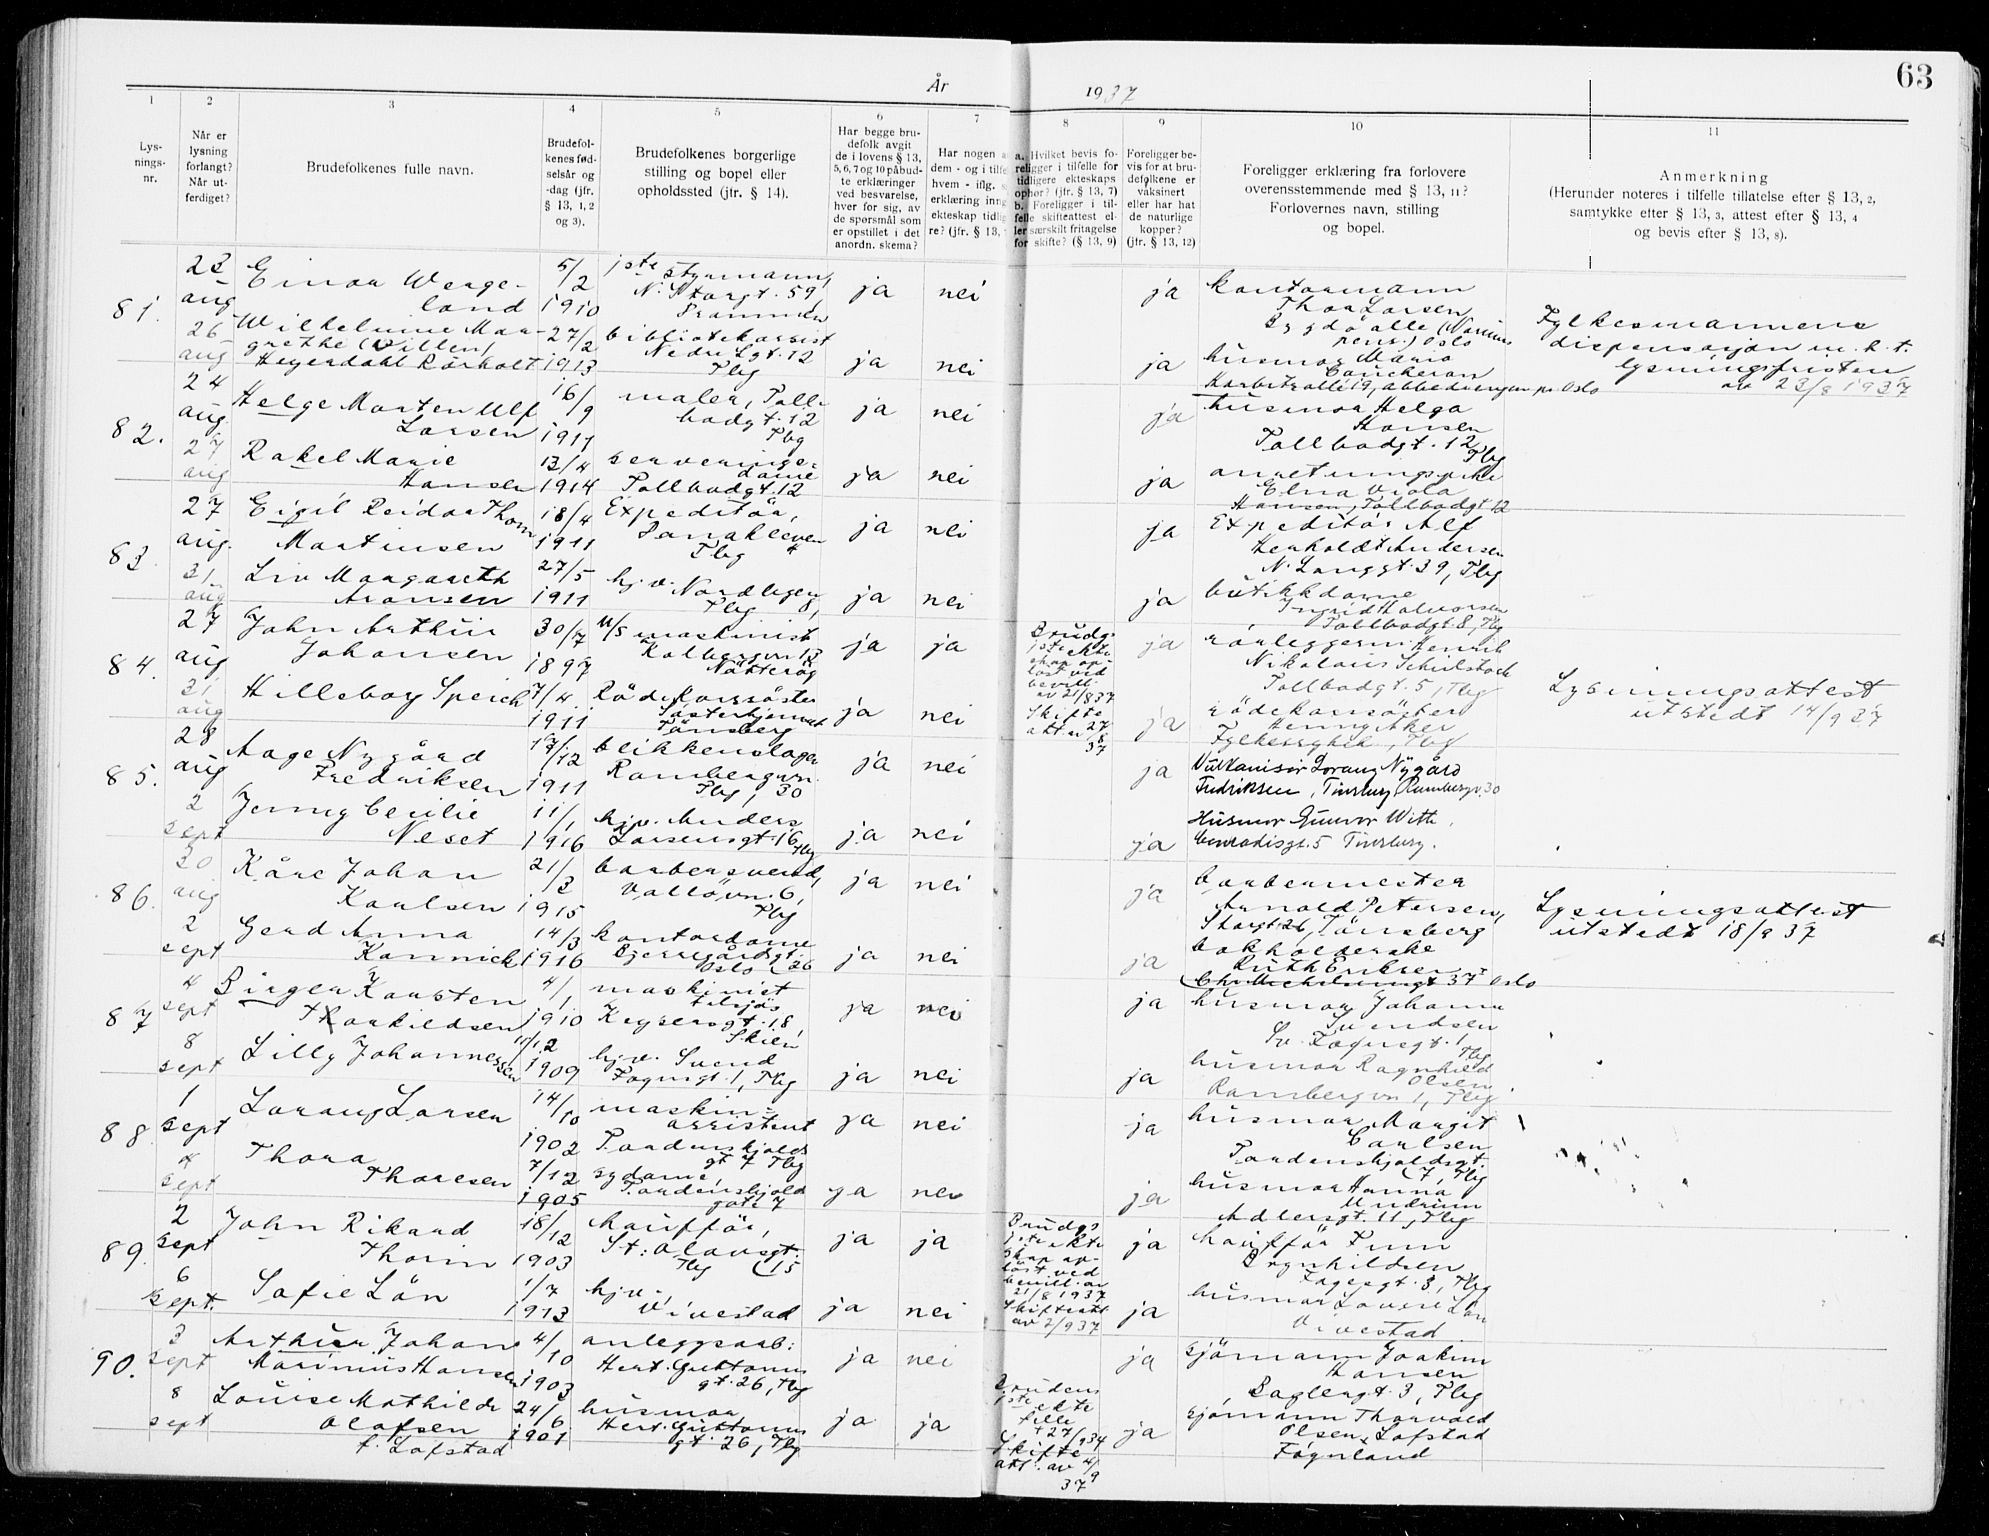 År 1937
63
1
2
3
4
5
6
7
8
9
10
11
Lys-
nings-
nr.
Når er
lysning
forlangt?
Når ut-
ferdiget?
Brudefolkenes fulle navn.
Brudefol-
kenes fød-
selsår og
-dag (jfr.
§ 13, 1, 2
og 3).
Brudefolkenes borgerlige
stilling og bopel eller
opholdssted (jfr. § 14).
Har begge bru-
defolk avgit
de i lovens § 13,
5, 6, 7 og 10 påbud-
te erklæringer
ved besvarelse,
hver for sig, av
de spørsmål som
er opstillet i det
anordn. skema?
Har nogen a
dem - og i tilfe
hvem - iflg. s
erklæring inng
ekteskap tidlig
re? (jfr. § 13,
a. Hvilket bevis fo-
religger i tilfelle for
tidligere ekteskaps
ophør? (jfr. § 13, 7)
b. Foreligger i til-
felle skifteattest el-
ler særskilt fritagelse
for skifte? (§ 13, 9)
Foreligger be-
vis for at bru-
defolkene er
vaksinert
eller har hat
de naturlige
kopper?
(jfr. § 13, 12)
Foreligger erklæring fra forlovere
overensstemmende med § 13, 11?
Forlovernes navn, stilling
og bopel.
Anmerkning
(Herunder noteres i tilfelle tillatelse efter § 13, 2,
samtykke efter § 13, 3, attest efter § 13, 4
og bevis efter § 13, 8).
81.
23
aug
Einar Werge-
land
5/2
1910
1ste styrmann,
N. Storgt. 59,
Drammen
ja
nei
ja
kontormann
Thor Larsen
Bygdö alle
Oslo
Fylkesmannens
dispensasjon m.h.t.
lysningsfristen
av 23/8 1937
26
aug
Wilhelmine Mar-
grethe (Villem)
Heyerdahl Rörholt
27/2
1913
bibliotekassist
Nedre Lgt. 12
Tbg
ja
nei
ja
husmor Maria
Oslo
82.
24
aug.
Helge Morten Ulf
Larsen
16/9
1911
maler, Toll-
bodgt. 12
Tbg
ja
nei
ja
husmor Helga
Hansen
Tollbodgt. 12
Tbg
27
aug
Rakel Marie
Hansen
13/4
1914
serverings-
dame
Tollbodgt. 12
ja
nei
ja
Elna Viola
Hansen, Tollbodgt 12
83.
27
aug.
Eigil Reidar Thom
Martinsen
18/4
1911
Expeditör,
Tbg
ja
nei
ja
Expeditör Alf
Herholdt Andersen
N. Langgt. 39, Tbg
31
aug
Liv Margareth
Aronsen
27/5
1911
hj.v. Nordbyen
8,
Tbg
ja
nei
ja
butikkdame
Ingrid Halvorsen
Tollbodgt. 8, Tbg
84.
27
aug
John Arthur
Johansen
30/7
1897
M/S maskinist
Kolbergvn 13
Nötteröy
ja
ja
Brudg.
1ste ekte
skap op-
löst ved
bevill.
av 21/8 37
Skifte
att. 27/8
37
ja
rörleggerm. Henrik
Nikolaus Schulstock
Tollbodgt. 5, Tbg
Lysningsattest
utstedt 14/9 37
31
aug
Hilleborg Speich
7/4
1911
Röde Korssöster
Sösterhjemmet
Tönsberg
ja
nei
ja
rödekorssöster
Henny Aker
Fylkessykeh., Tbg
85.
28
aug
Aage Nygård
Fredriksen
17/12
1911
blikkenslager
Rambergvn.
Tbg, 30
ja
nei
ja
Vulkanisör Lorang Nygård
Fredriksen, Tönsberg Rambergv. 30
2
sept
Jenny Cecilie
Neset
11/1
1916
hjv. Anders
Larsensgt. 16
Tbg
ja
nei
ja
Husmor Gunvor With.
Conradisgt. 5 Tönsberg.
86.
30
aug
Kåre Johan
Karlsen
21/3
1915
barbersvend,
Vallövn. 6,
Tbg
ja
nei
ja
barbermester
Arnold Petersen,
Storgt. 26, Tönsberg
Lysningsattest
utstedt 18/9 37
2
sept
Gerd Anna
Kannick
14/3
1916
kontordame
Bjerregårdsgt.
Oslo 26
ja
nei
ja
bokholderske
Ruth Eriksen
37 Oslo
87
4
sept
Birger Karsten
Thorkildsen
4/1
1910
maskinist
tilsjös
Keysersgt. 18,
Skien
ja
nei
ja
husmor Johanne
Svendsen
Sv. Foynsgt. 1
Tbg
8
sept
Lilly Johannessen
11/12
1909
hjv. Svend
Foynsgt. 1, Tbg
ja
nei
ja
husmor Ragnhild
Olsen
Rambergvn 1, Tbg
88.
1
sept
Lorang Larsen
14/10
1902
maskin-
assistent
Tordenskjolds
gt 7 Tbg
ja
nei
ja
husmor Margit
Carlsen
Tordenskjoldsgt.
7, Tbg
4
sept
Thora
Thoresen
7/12
1905
sydame,
Tordenskjolds
gate 7
ja
nei
ja
husmor Hanna
Undrum
Adlersgt. 11, Tbg
89.
2
sept
John Rikard
Thorin
18/12
1903
chaufför,
St: Olavsgt.
Tbg 15
ja
ja
Brudgs
1ste ekte
skap op-
löst ved
bevill. av
21/8 1937
Skifteatt
av 2/9 37
ja
chaufför Finn
Brynhildsen
Fayesgt. 3, Tbg
6
sept.
Sofie Lön
1/7
1913
hjv.,
Vivestad
ja
nei
ja
husmor Lovise Lön
Vivestad
90.
3
sept
Arthur Johan
Marinius Hansen
4/10
1903
anleggsarb:
Hert. Guttorms
gt. 26, Tbg
ja
nei
ja
sjömann Joakim
Hansen
Baglergt. 3, Tbg
8
sept
Louise Mathilde
Olafsen
f. Lofstad
24/6
1901
husmor
Hert. Guttorms
gt. 26, Tbg
ja
ja
Brudens
1ste ekte
felle
† 27/9 34
Skifte
att. av 4/9
37
ja
sjömann Thorvald
Olsen Lofstad
Föynland